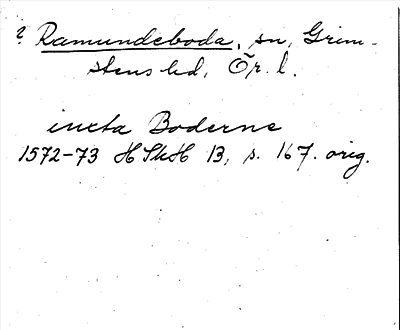 ? Ramundeboda, sn, Grim-
stens hd, Ör. l.
iuxta Boderne
1572-73 HSkH 13, s. 167. orig.